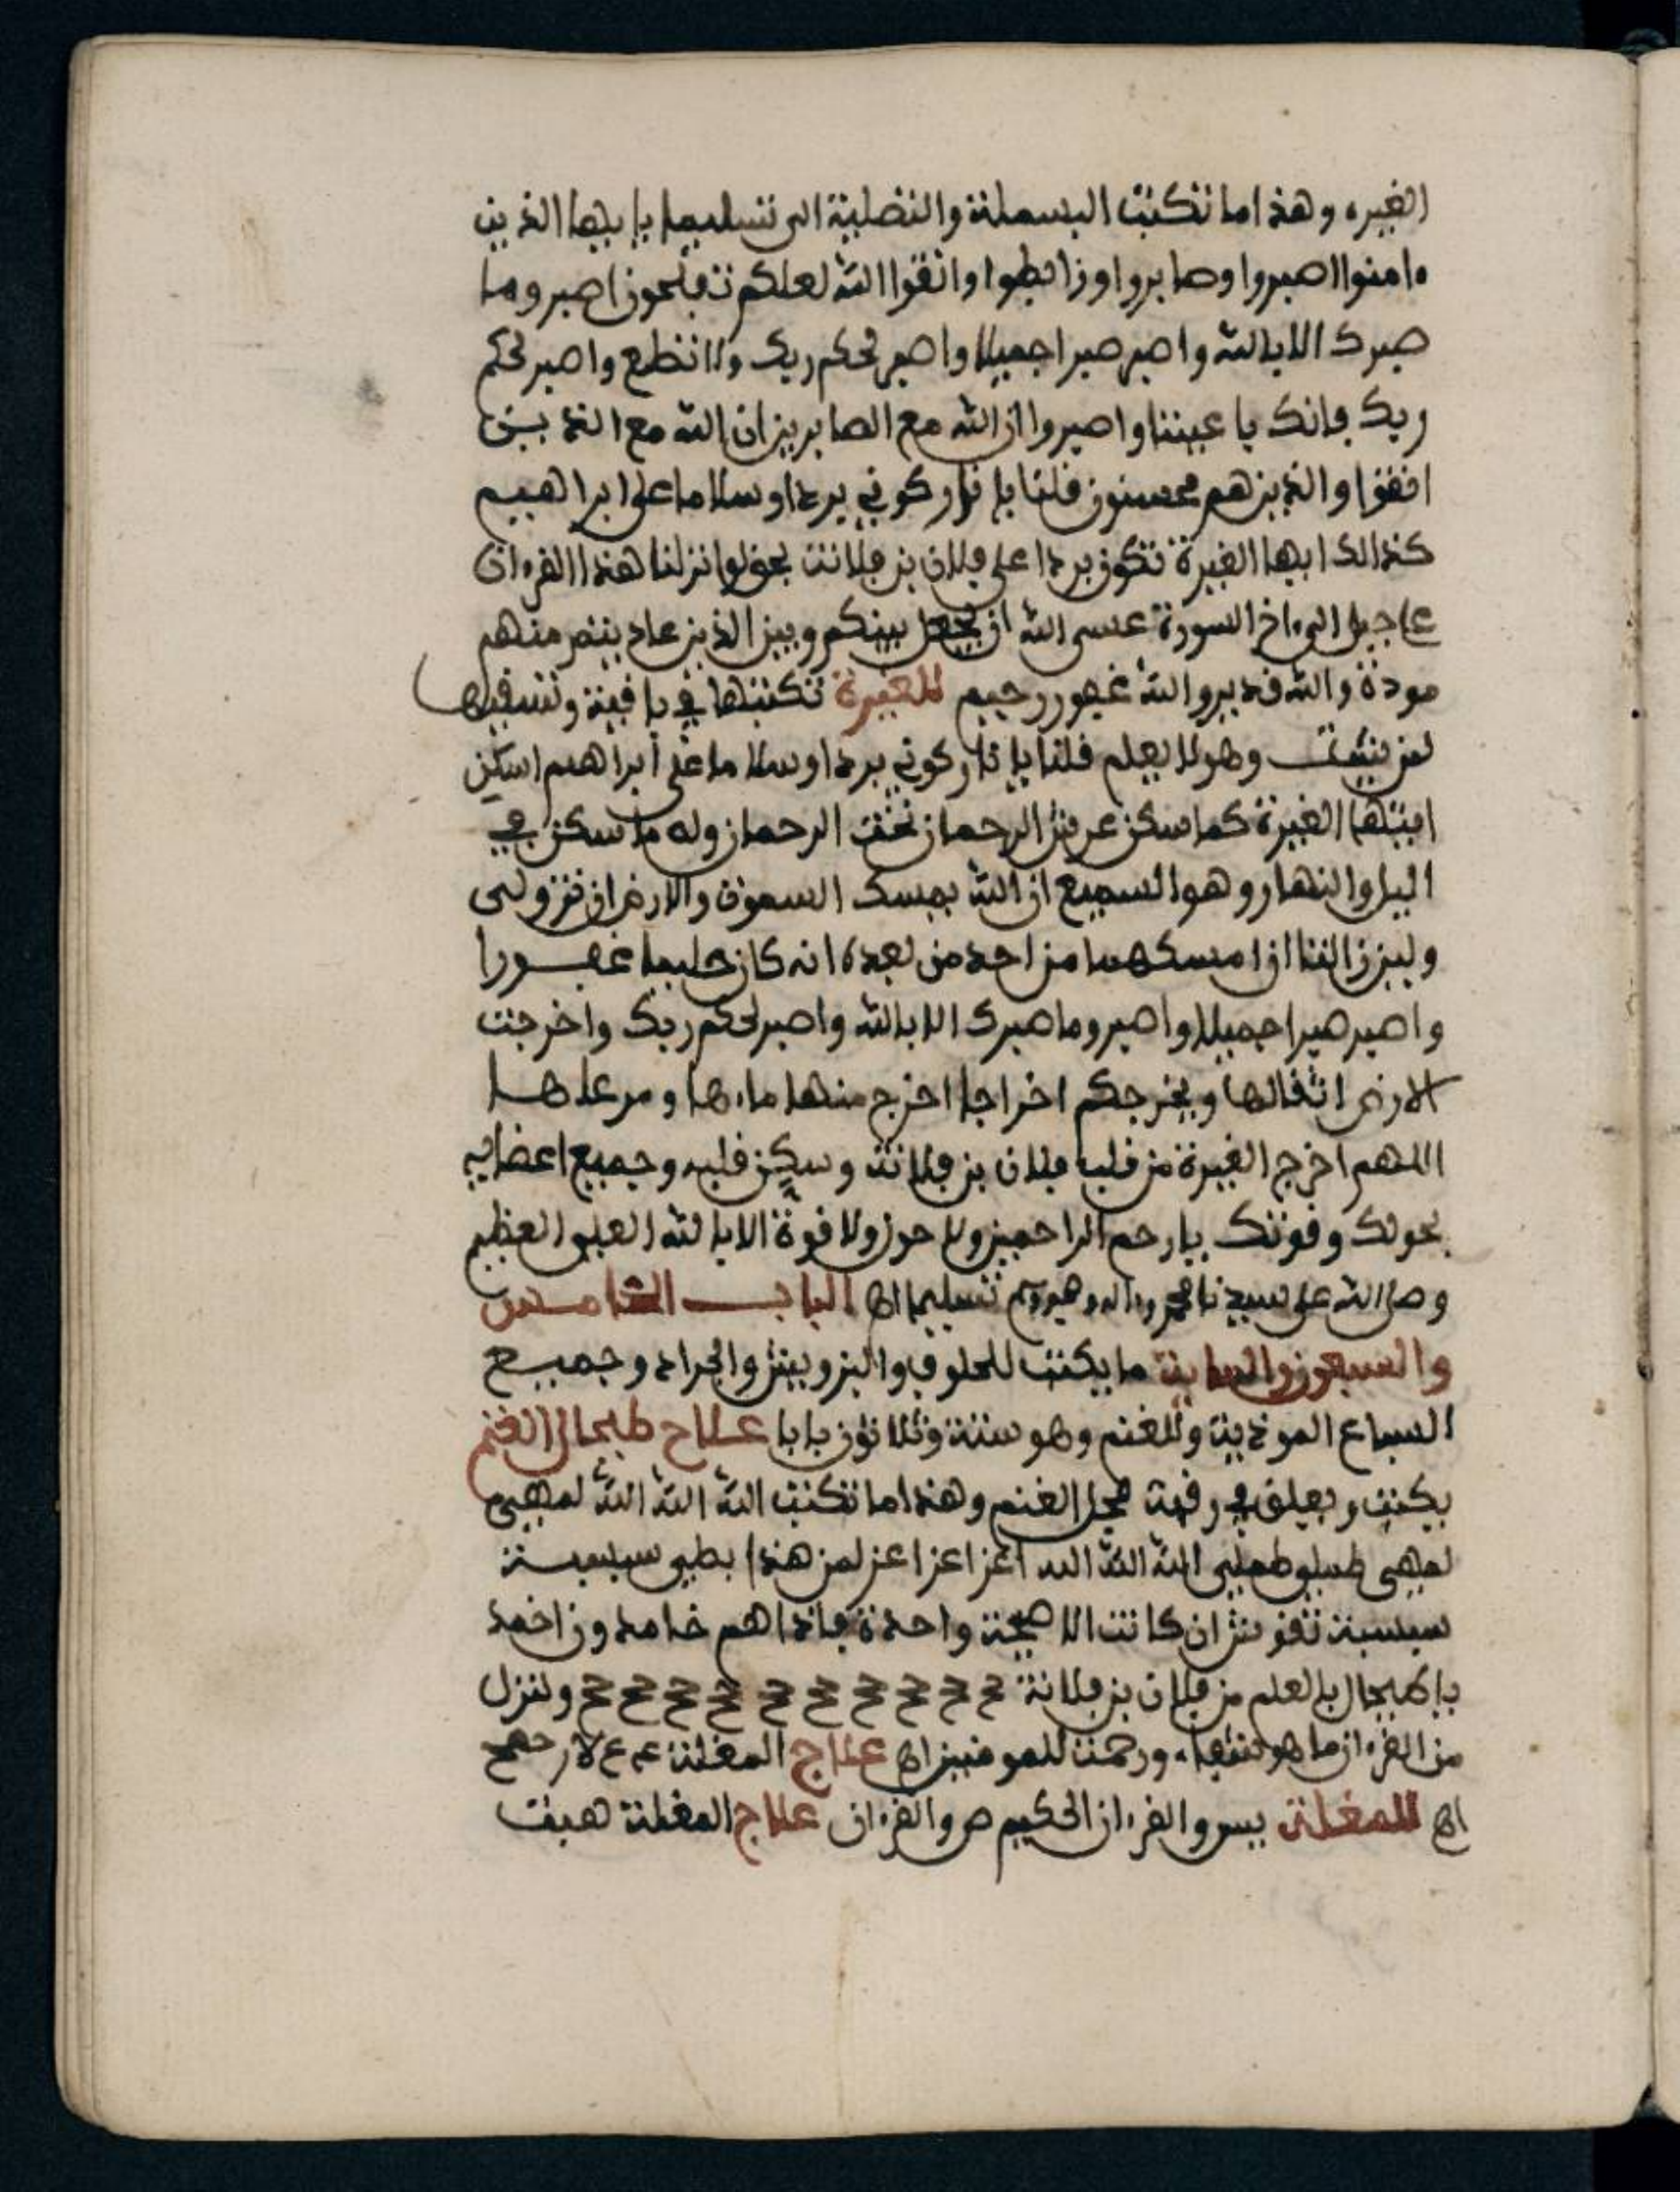 الغيره وهذا ما تكتب البسملة والتصلية الى تسليما يا ايها الذين
ءامنوا اصبروا وصابروا ورابطوا واتقوا الله لعلكم تفلحون اصبر وما
صبرك الا بالله واصبر صبرا جميلا واصبر لحكم ربك ولا تطع واصبر لحكم
ربك فانك باعيننا واصبروا ان الله مع الصابرين ان الله مع الذين
اتقوا والذين هم محسنون قلنا يا نار كوني بردا وسلاما على ابراهيم
كذالك ايها الغيرة تكون بردا على فلان بن فلانة بحق لو انزلنا هذا القرءان
على جبل الى ءاخر السورة عسى الله ان يجعل بينكم وبين الذين عاديتم منهم
مودة والله قدير والله غفور رحيم للغيرة تكتبها في باقية وتسقيها
لمن شئت وهو لا يعلم قلنا يا نار كوني بردا وسلاما على ابراهيم اسكن
ايتها الغيرة كما سكن عرش الرحمان تحت الرحمان وله ما سكن في
اليل والنهار وهو السميع ان الله يمسك السموت والارض ان تزولى
ولين زالتا ان امسكهما من احد من بعده انه كان حليما غفورا
واصبر صبرا جميلا واصبر وما صبرك الا بالله واصبر لحكم ربك واخرجت
الارض اثقالها ويخرجكم اخراجا اخرج منها ماءها ومرعاها
اللهم اخرج الغيرة من قلب فلان بن فلانة وسكن قلبه وجميع اعضايه
بحولك وقوتك يا رحم الراحمين ولا حول ولا قوة الا بالله العلى العظيم
وصلى الله على سيدنا محمد وءاله وصحبه وسلم تسليما اهـ الباب الخامس
والسبعون والماية ما يكتب للحلوف والبزويش والجراد وجميع
السباع الموذية وللغنم وهو ستة وثلاثون بابا علاج طيحال الغنم
يكتب ويعلق في رقبة فحل الغنم وهذا ما تكتب الله الله الله لمهبى
لمهبى طسلو طملبى الله الله الله اعز اعز اعز لمن هذا بطبى سبسبة
سبسبة تقوش ان كانت الا صيحة واحدة فاذا هم خامدون اخمد
يا طيحال بالعلم من فلان بن فلانة ح ح ح ح ح ح ح ح ح ح وننزل
من القرءان ما هو شفاء ورحمة للمومنين اهـ علاج المغلة
اهـ للمغلة يس والقرءان الحكيم ص والقرءان علاج المغلة هيفت